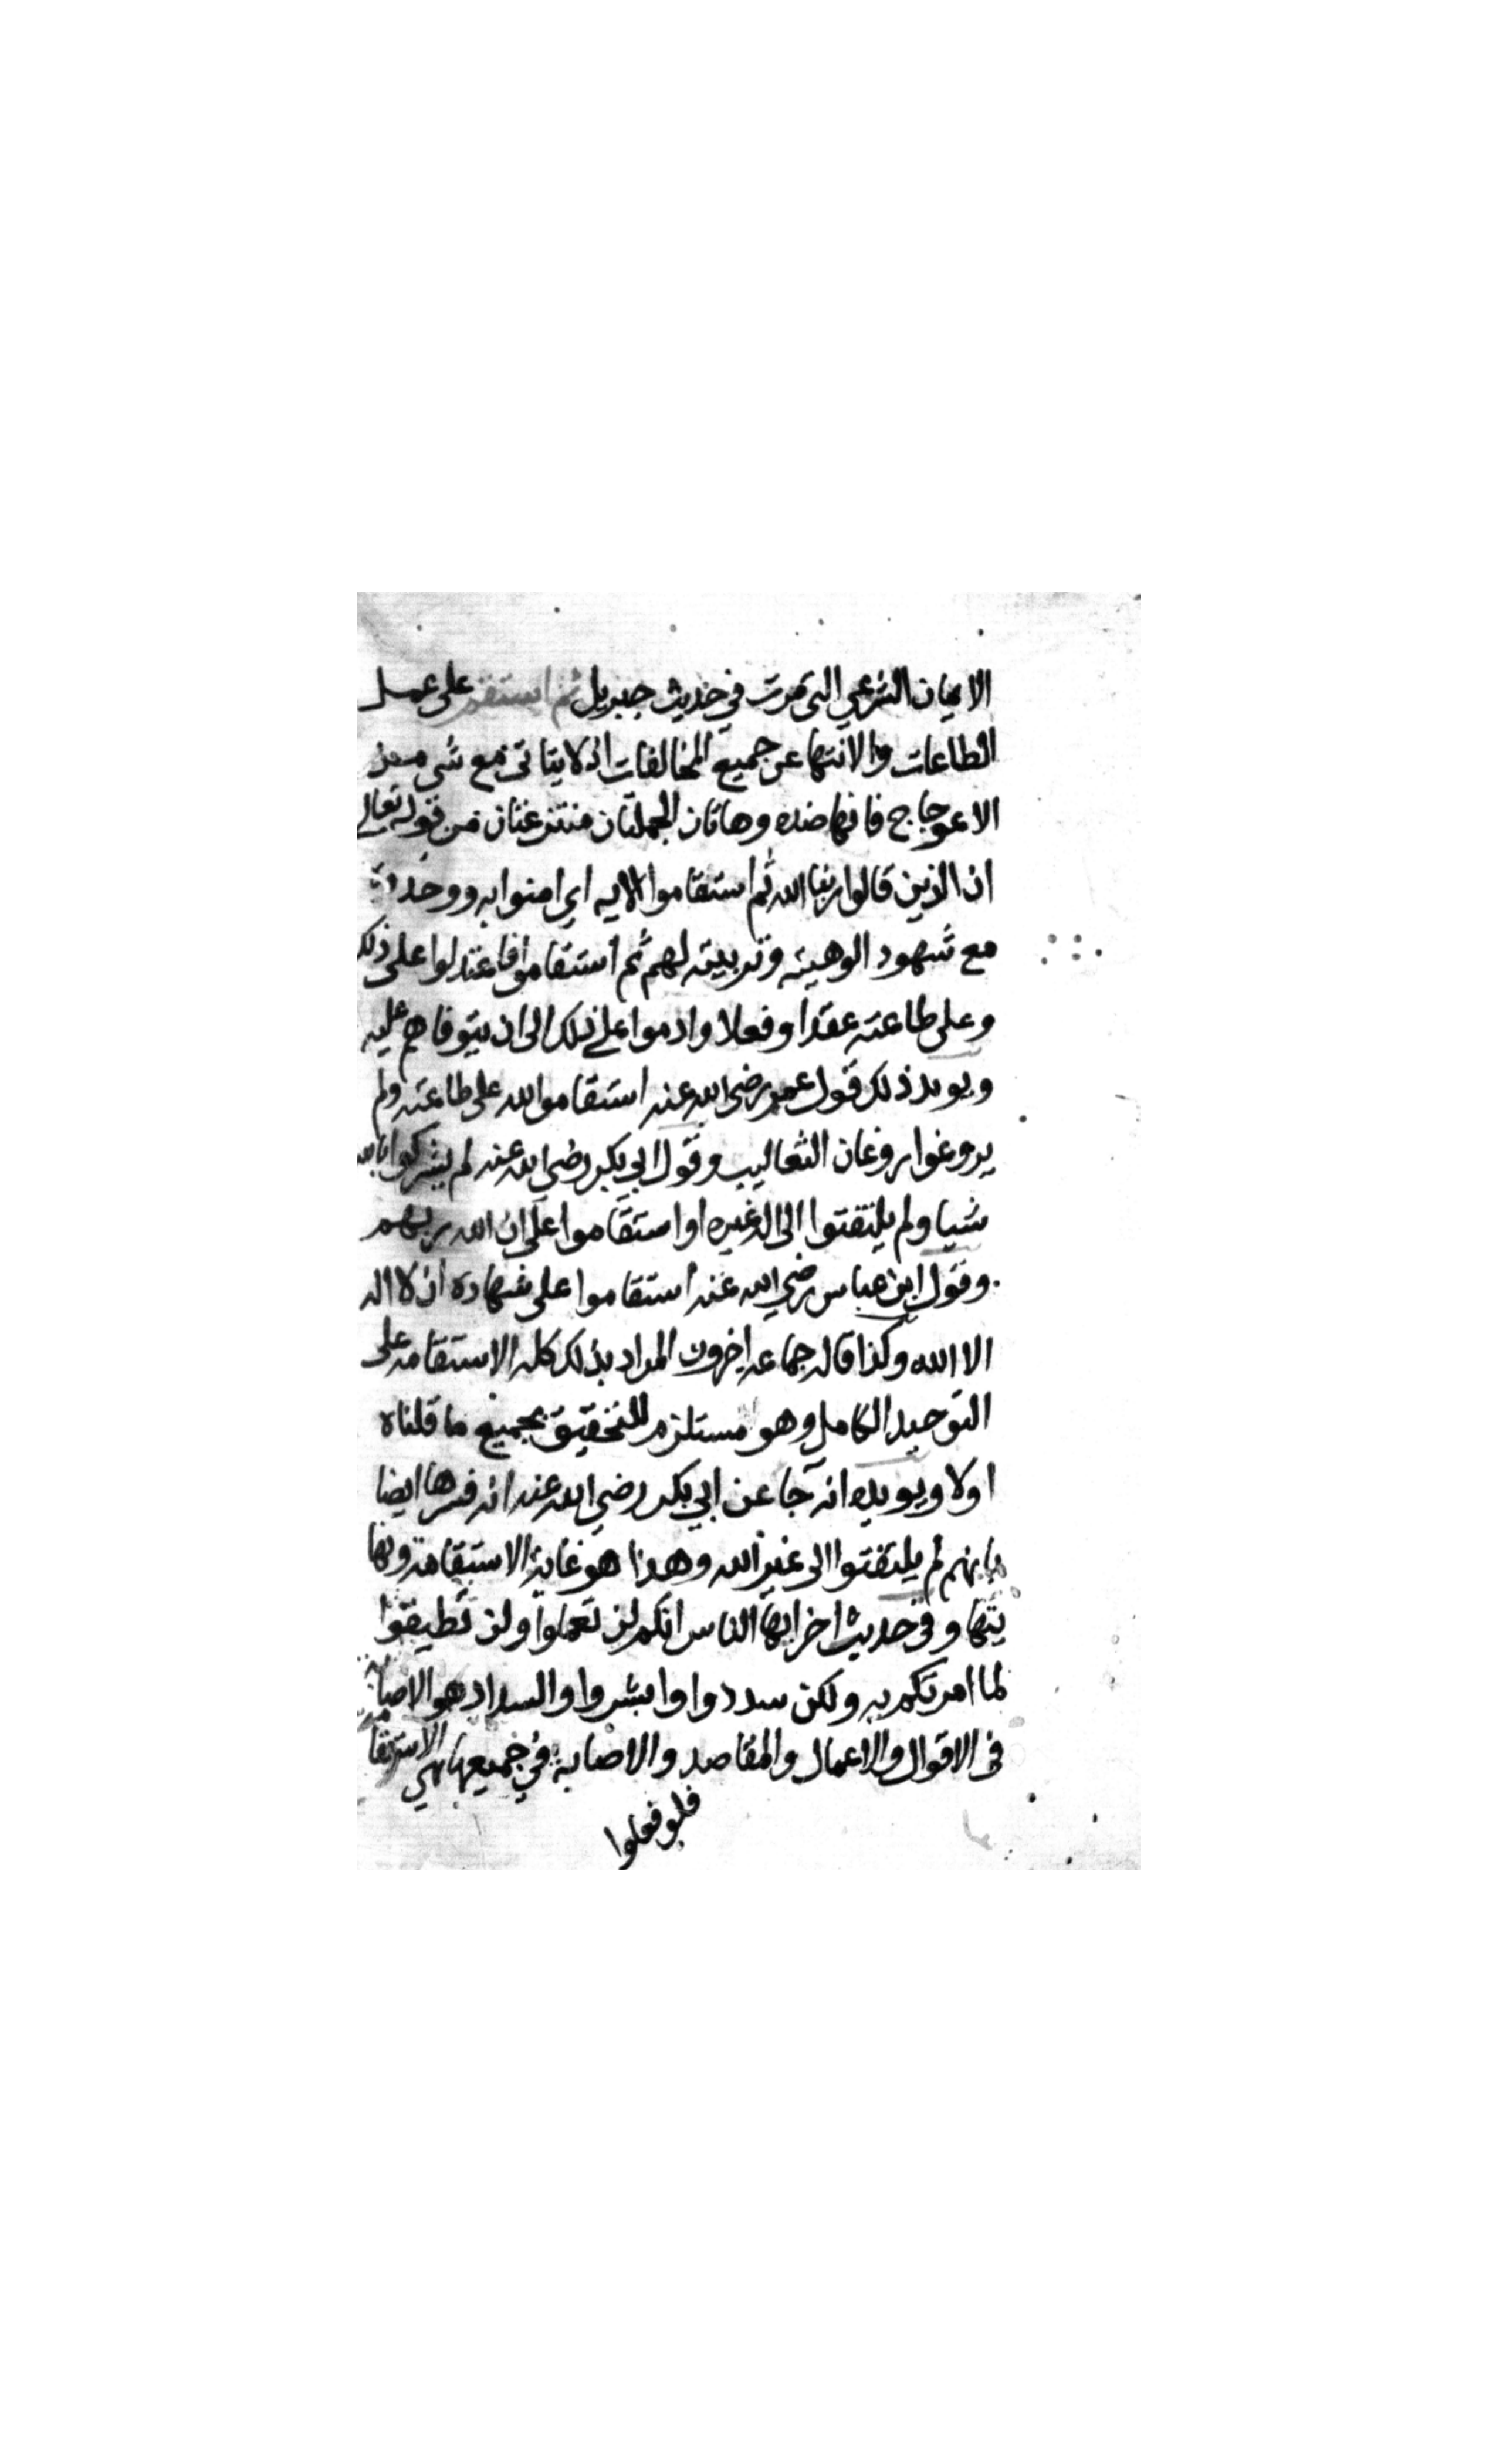 الايمان الشرعي التي مرت في حديث جبريل ثم استقم على عمل
الطاعات والانتها عن جميع المخالفات اذ لا يتاتى مع شي من
الاعوجاج فانها ضده وهاتان الجملتان منتزعتان من قوله تعالى
ان الذين قالوا ربنا الله ثم استقاموا الايه اي امنوا به ووحدوه
مع شهود الوهيته وتربيته لهم ثم استقاموا فاعتدلوا على ذلك
وعلى طاعته عقدا وفعلا وادموا على ذلك الى ان يتوفاهم عليه
ويويد ذلك قول عمر رضي الله عنه استقاموا لله على طاعته ولم
يروغوا روغان الثعاليب وقول ابي بكر رضي الله عنه لم يشركوا بالله
شيا ولم يلتفتوا الى اله غيره او استقاموا على ان الله ربهم
وقول ابن عباس رضي الله عنه استقاموا على شهادة ان لا اله
الا الله وكذا قاله جماعه اخرون المراد بذلك كله الاستقامه على
التوحيد الكامل وهو مستلزم للتحقيق بجميع ما قلناه
اولا ويويده انه جا عن ابي بكر رضي الله عنه انه فسرها ايضا
بانهم لم يلتفتوا الى غير الله وهذا هو غاية الاستقامة ونها
يتها وفي حديث اخر ايها الناس انكم لن تعملوا ولن تطيقوا
لما امرتكم به ولكن سددوا وابشروا والسداد هو الاصابه
في الاقوال والاعمال والمقاصد والاصابة في جميعها هي الاستقامه
فلو فعلوا